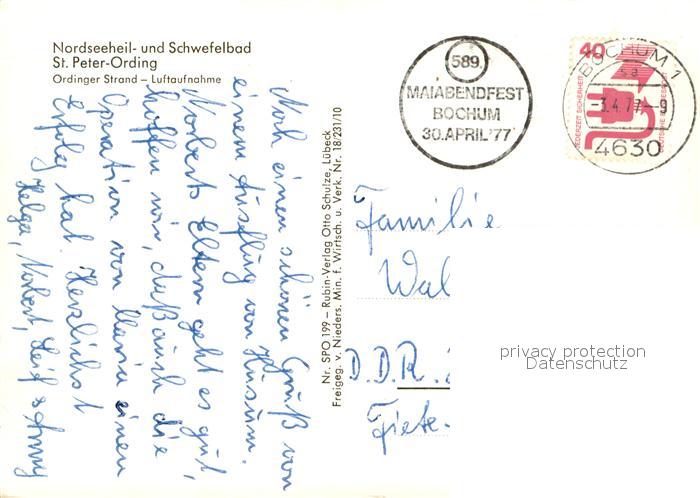 Nordseeheil- und Schwefelbad
St. Peter-Ording
Ordinger Strand – Luftaufnahme
Noch einen schönen Gruß von
einem Ausflug von Husum.
Norberts Eltern geht es gut,
hoffen wir, daß auch die
Operation von Maria einen
Erfolg hat. Herzlichst
Helga, Norbert, Leif
Nr. SPO 199 – Rubin-Verlag Otto Schulze, Lübeck
Freigeg. v. Nieders. Min. f. Wirtsch. u. Verk. Nr. 18/231/10
589.
MAIABENDFEST
BOCHUM
30. APRIL '77
40
JEDERZEIT SICHERHEIT
DEUTSCHE
BOCHUM 1
-3.4.77-9
4630
Familie
Wal
D.D.R.
privacy protection
Datenschutz